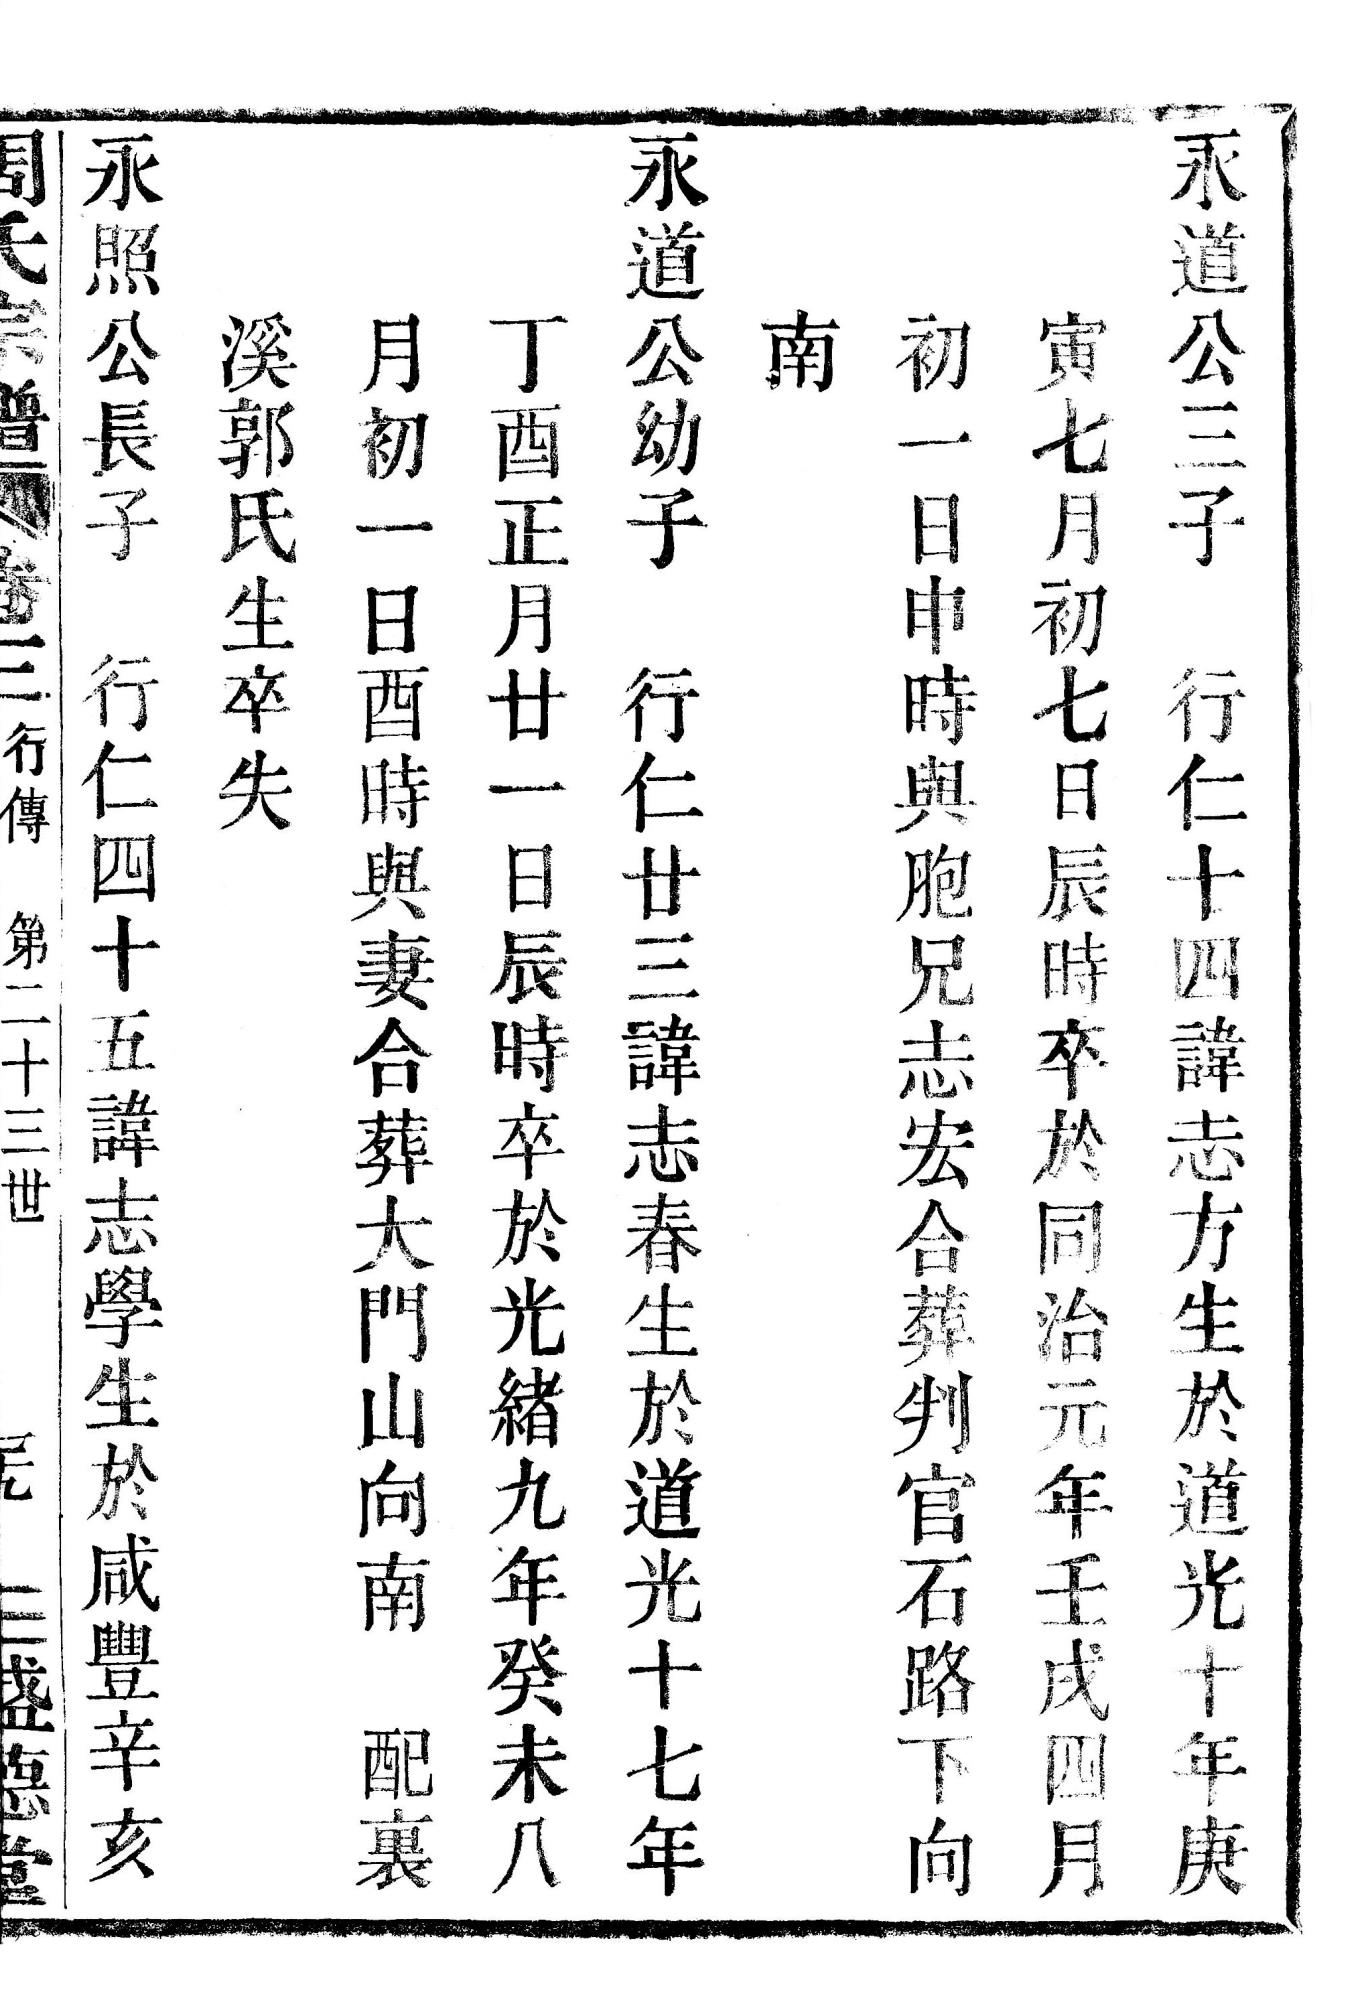 永道公三子　行仁十四諱志方生於道光十年庚
寅七月初七日辰時卒於同治元年壬戌四月
初一日申時與胞兄志宏合葬判官石路下向
南
永道公幼子　行仁廿三諱志春生於道光十七年
丁酉正月廿一日辰時卒於光緒九年癸未八
月初一日酉時與妻合葬大門山向南　配裏
溪郭氏生卒失
永照公長子　行仁四十五諱志學生於咸豐辛亥
周氏宗譜 卷三 行傳 第二十三世 三盛德堂